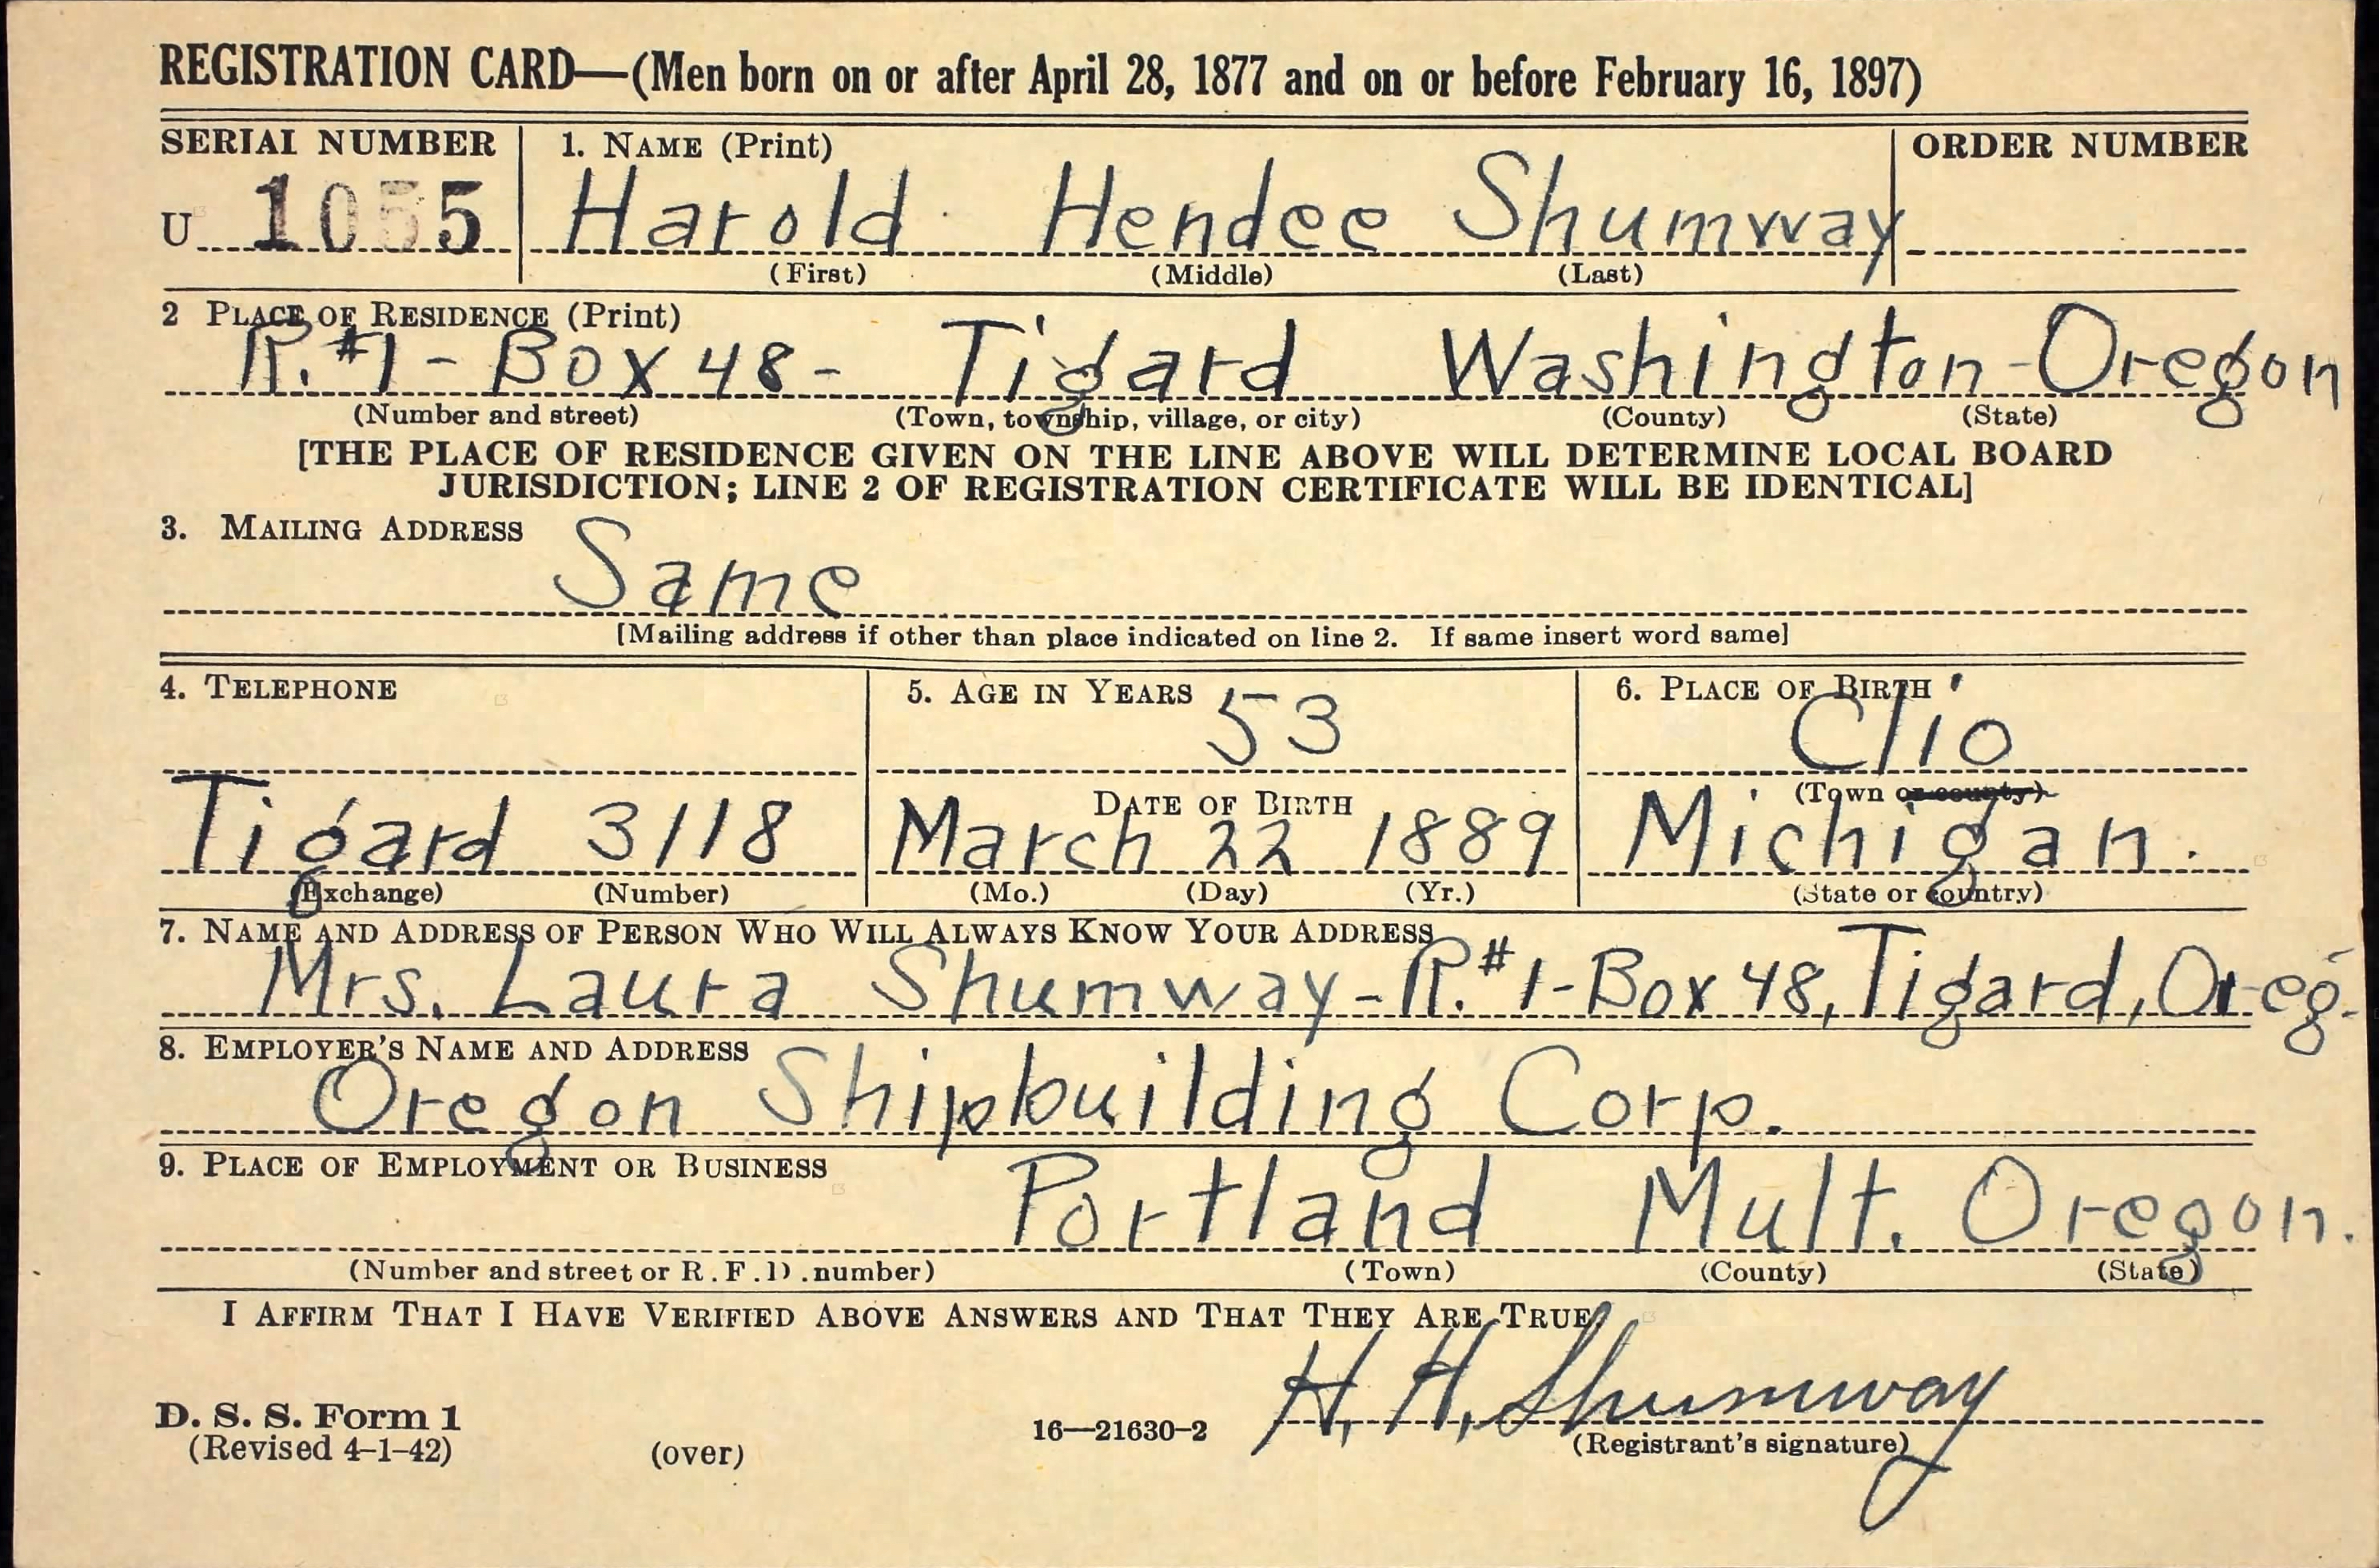 REGISTRATION CARD—(Men born on or after April 28, 1877 and on or before February 16, 1897)
SERIAL NUMBER 1. NAME (Print) ORDER NUMBER
U 1055 Harold Hendee Shumway
(First) (Middle) (Last)
2 PLACE OF RESIDENCE (Print)
R. #1 - Box 48 - Tigard Washington - Oregon
(Number and street) (Town, township, village, or city) (County) (State)
[THE PLACE OF RESIDENCE GIVEN ON THE LINE ABOVE WILL DETERMINE LOCAL BOARD
JURISDICTION; LINE 2 OF REGISTRATION CERTIFICATE WILL BE IDENTICAL]
3. MAILING ADDRESS
Same
[Mailing address if other than place indicated on line 2. If same insert word same]
4. TELEPHONE 5. AGE IN YEARS 6. PLACE OF BIRTH
53 Clio
DATE OF BIRTH (Town or county)
Tigard 3118 March 22 1889 Michigan.
(Exchange) (Number) (Mo.) (Day) (Yr.) (State or country)
7. NAME AND ADDRESS OF PERSON WHO WILL ALWAYS KNOW YOUR ADDRESS
Mrs. Laura Shumway - R. #1 - Box 48, Tigard, Oreg.
8. EMPLOYER'S NAME AND ADDRESS
Oregon Shipbuilding Corp.
9. PLACE OF EMPLOYMENT OR BUSINESS
Portland Mult. Oregon.
(Number and street or R.F.D. number) (Town) (County) (State)
I AFFIRM THAT I HAVE VERIFIED ABOVE ANSWERS AND THAT THEY ARE TRUE
H. H. Shumway
D. S. S. Form 1
(Revised 4-1-42) (over) 16—21630-2 (Registrant's signature)